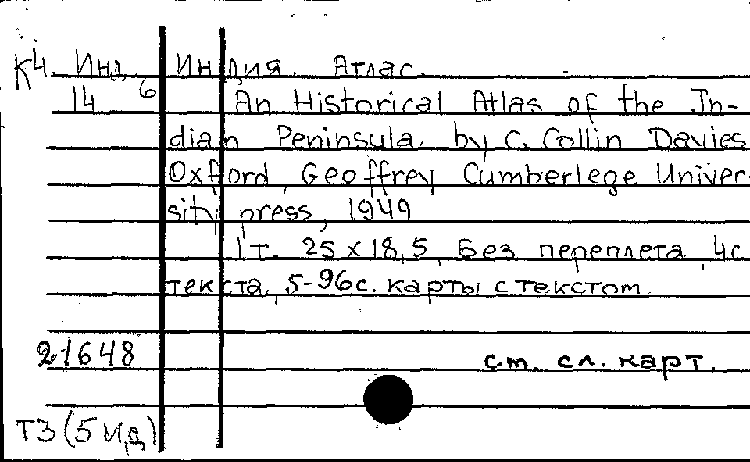 К4 Инд. Индия. Атлас.
14 6 An Historical Atlas of the In-
dian Peninsula, by C. Collin Davies
Oxford, Geoffrey Cumberlege Univer-
sity press, 1949
1т. 25 x 18,5, Без переплета, 4с
текста, 5-96с. карты с текстом.
21648 см. сл. карт.
Т3 (5 Ид)